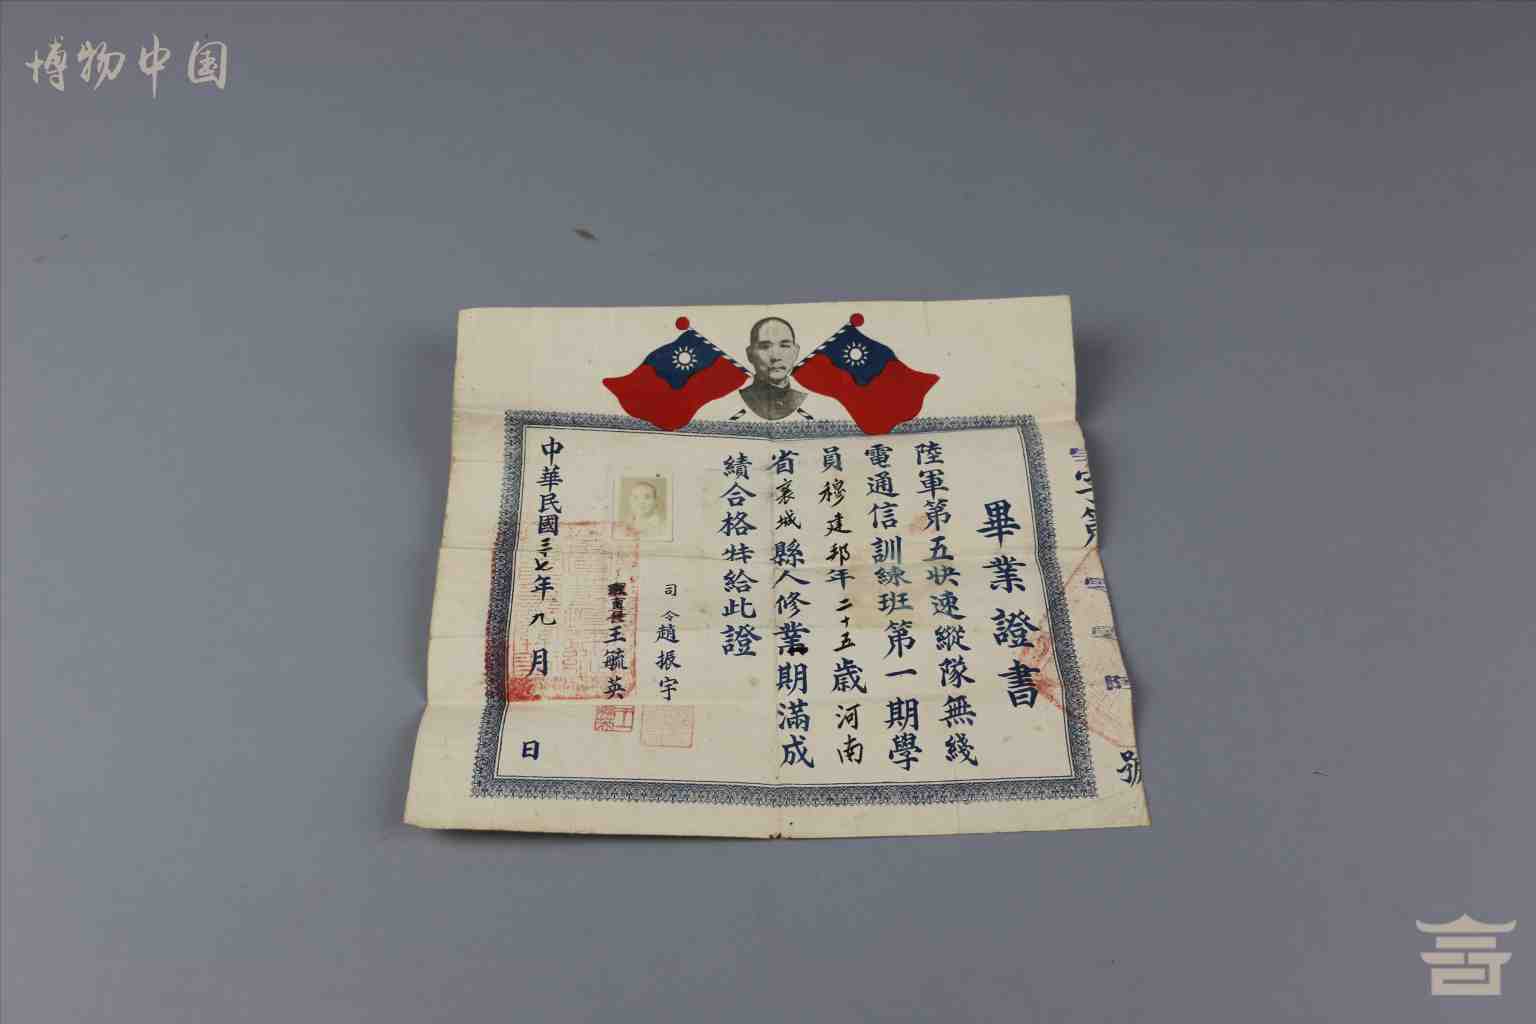 博物中国
畢業證書
陸軍第五快速縱隊無綫
電通信訓練班第一期學
員穆建邦年二十五歲河南
省襄城縣人修業期滿成
績合格特給此證
司令趙振宇
王毓英
中華民國三十七年九月日
字第
號